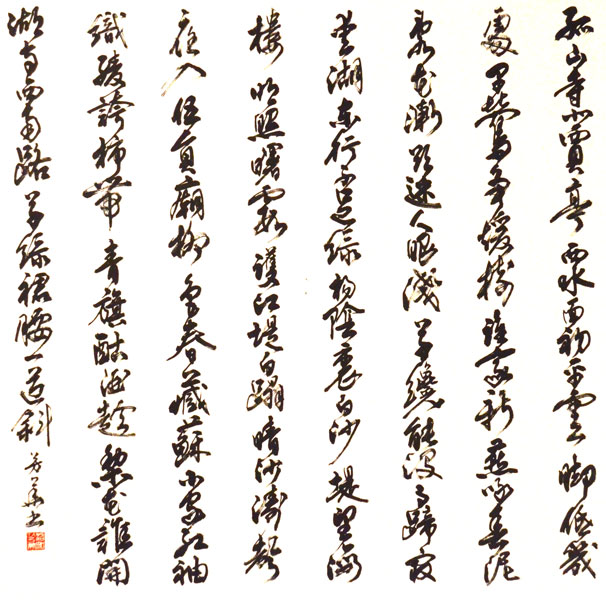 孤山寺北賈亭西水面初平雲脚低幾
處早鶯争暖樹誰家新燕啄春泥
亂花漸欲迷人眼淺草纔能没馬蹄最
愛湖東行不足綠楊陰裏白沙堤望海
樓明照曙霞護江堤白蹋晴沙濤聲
夜入伍員廟柳色春藏蘇小家紅袖
織綾誇柿蒂青旗酤酒趁梨花誰開
湖寺西南路草綠裙腰一道斜